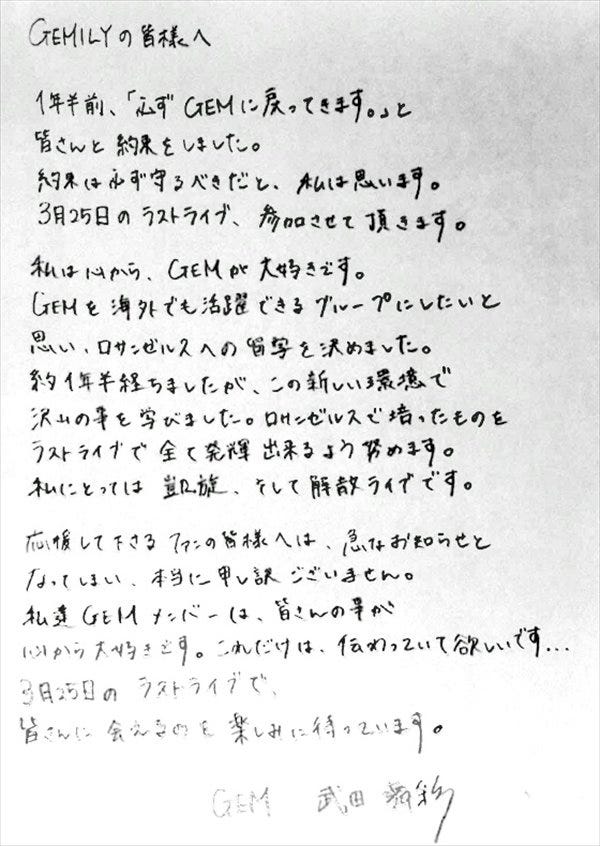 GEMILYの皆様へ
1年半前、「必ずGEMに戻ってきます。」と
皆さんと約束をしました。
約束は必ず守るべきだと、私は思います。
3月25日のラストライブ、参加させて頂きます。
私は心から、GEMが大好きです。
GEMを海外でも活躍できるグループにしたいと
思い、ロサンゼルスへの留学を決めました。
約1年半経ちましたが、この新しい環境で
沢山の事を学びました。ロサンゼルスで培ったものを
ラストライブで全て発揮出来るよう努めます。
私にとっては凱旋、そして解散ライブです。
応援して下さるファンの皆様へは、急なお知らせと
なってしまい、本当に申し訳ございません。
私達GEMメンバーは、皆さんの事が
心から大好きです。これだけは、伝わっていて欲しいです...
3月25日のラストライブで、
皆さんに会えるのを楽しみに待っています。
GEM 武田舞彩